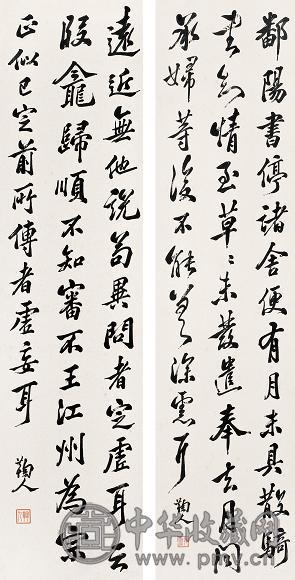 鄱陽書停諸舍便有月未具散騎
書知情至草〻未發遣奉去月問
承婦等復不能差深憂耳 鞠人
遠近無他說苟異問者定虛耳云
段龕歸順不知審不王江州為宗
正似已定前所傳者虛妄耳 鞠人
中华收藏网